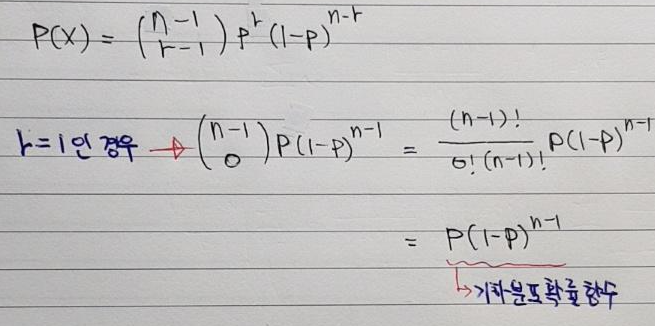 P(X) = (n-1 r-1) p^r (1-p)^n-r
r=1인 경우 → (n-1 0) P(1-P)^n-1 = (n-1)! / 0! (n-1)! P(1-P)^n-1
= P(1-P)^n-1
↳ 기하분포 확률함수